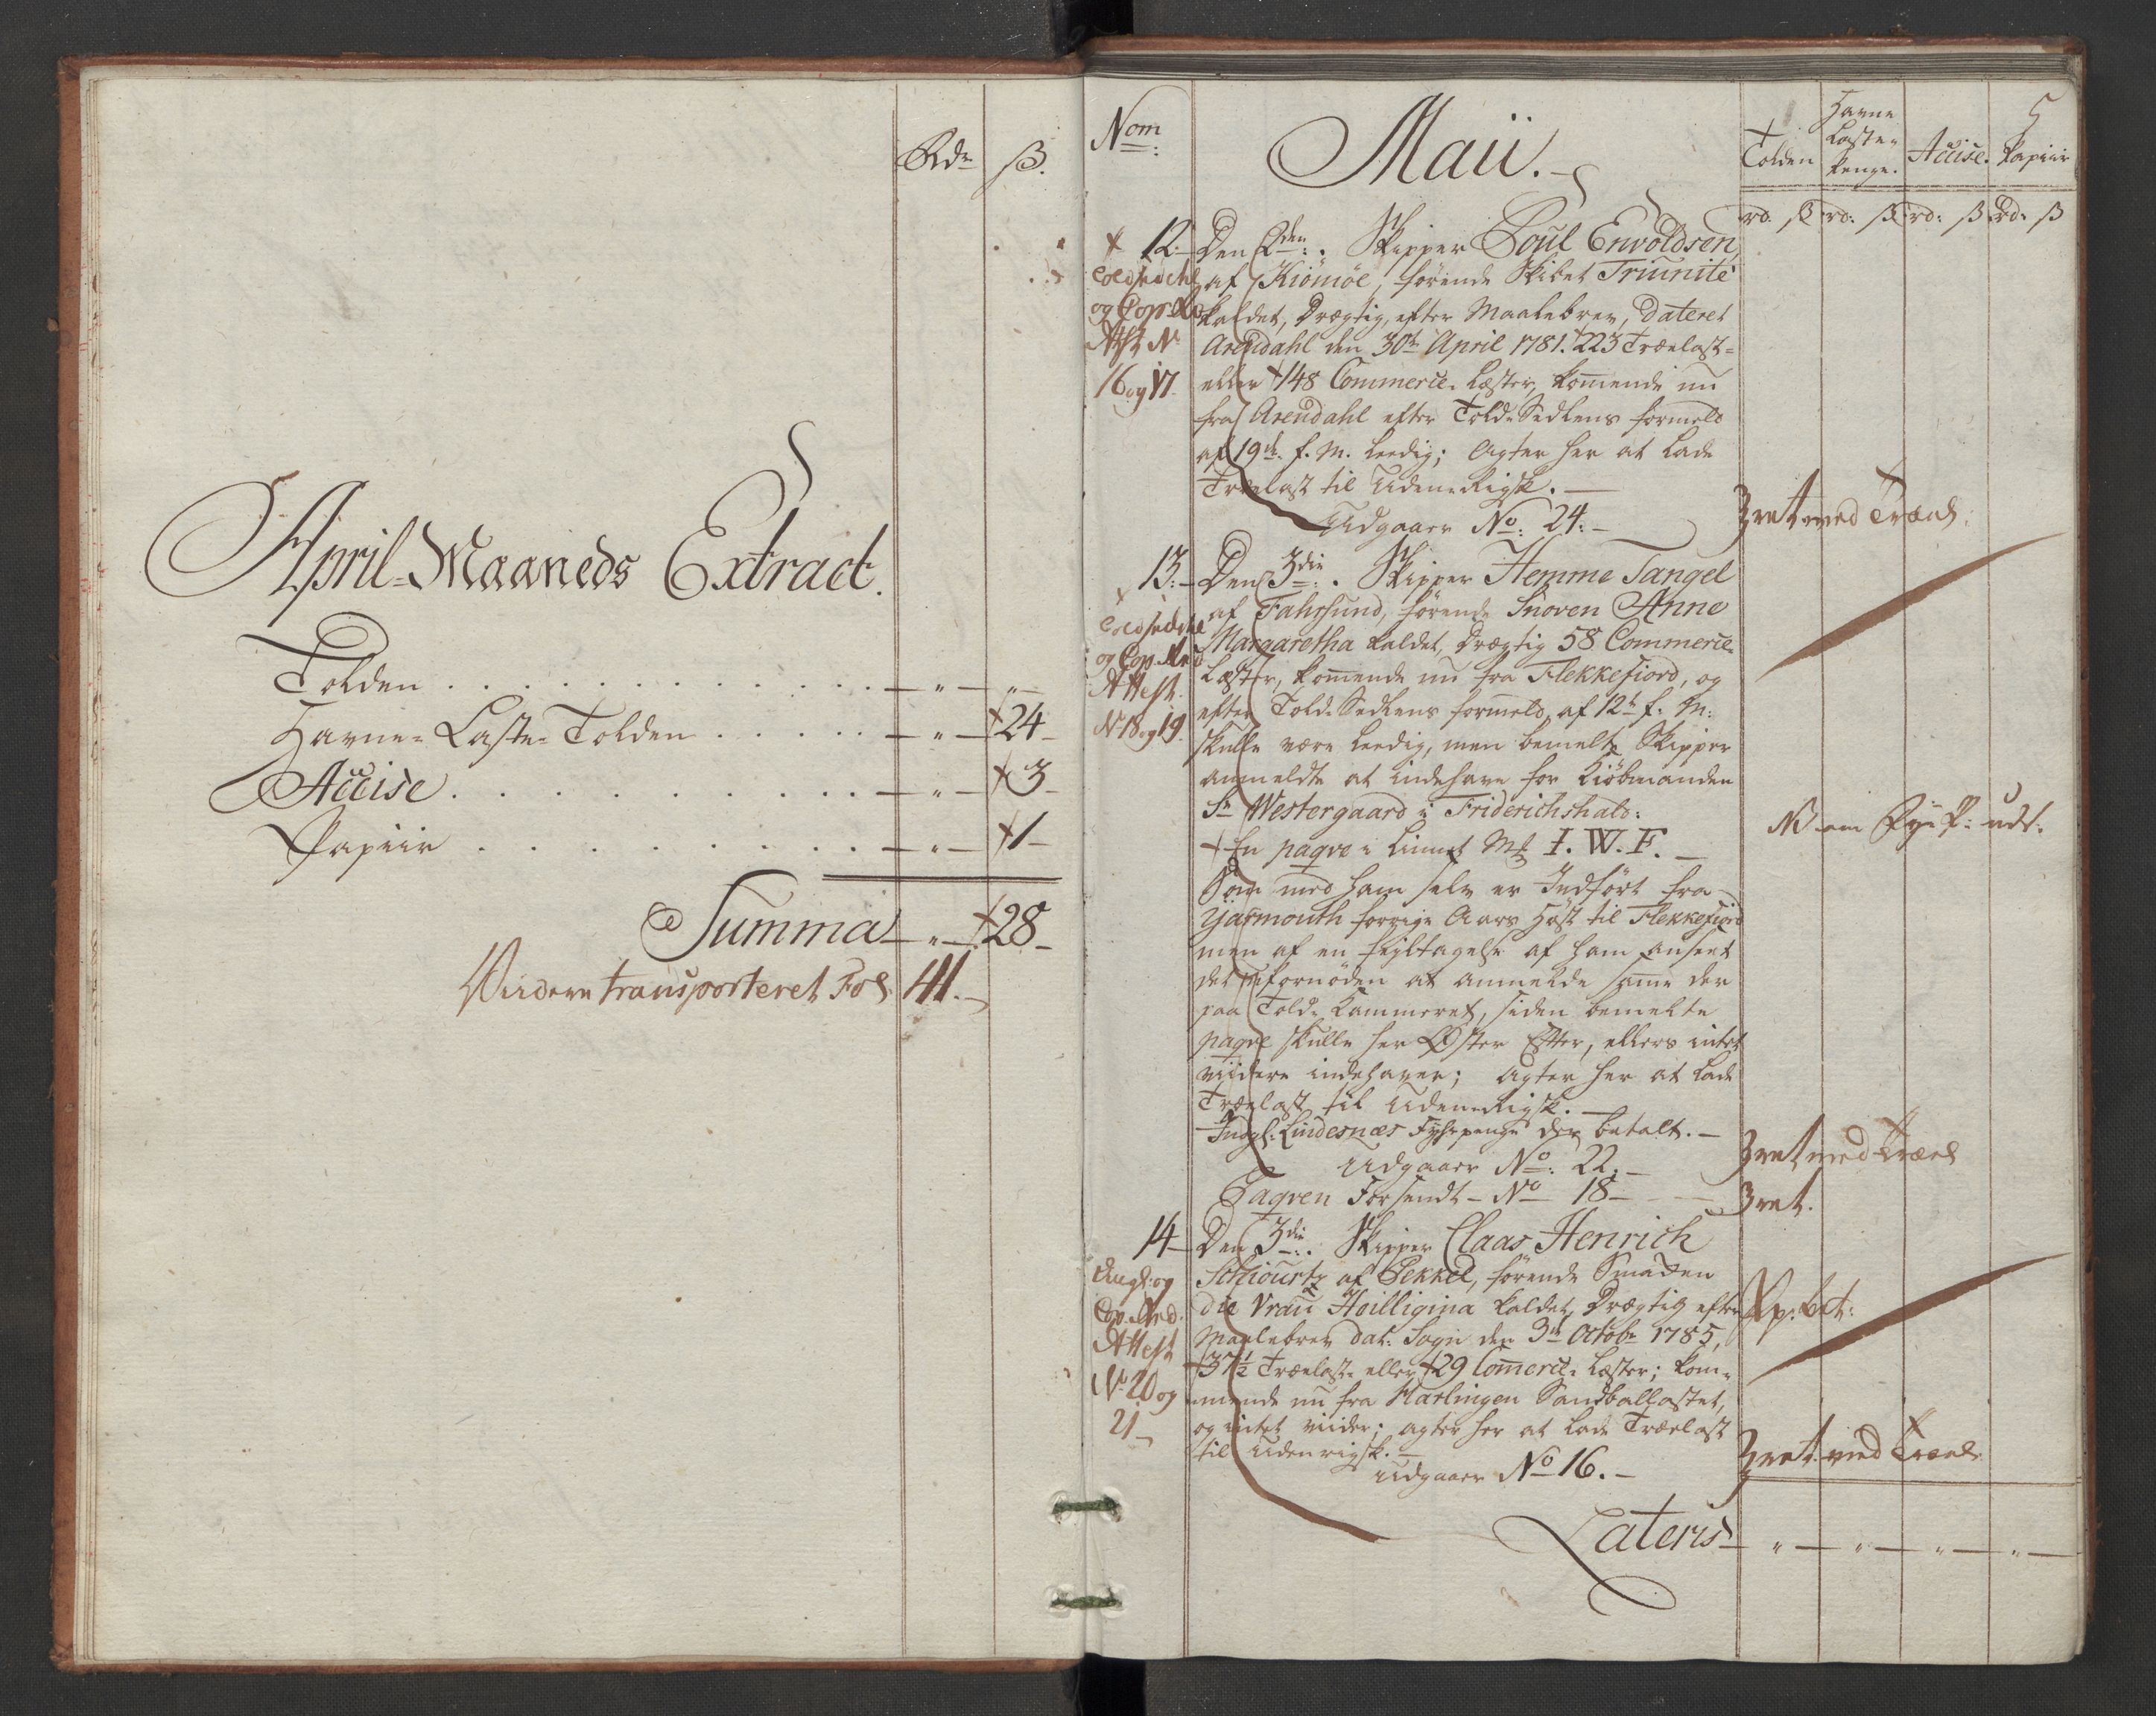 Rdr ß.
April-Maaneds Extract.
Tolden . . . . . . . . . . . . — „ — „ —
Havne-Laste-Tolden . . . . . — „ — 24 —
Accise . . . . . . . . . . . — „ — 3 —
Papiir . . . . . . . . . . . — „ — 1 —
Summa — „ — 28 —
Viidere transporteret Fol. 41. —
Nom:
Maii.
5
Tolden
Havne Laste-penge.
Accise.
Papiir
rd. ß rd: ß rd: ß Rd. ß
12. Den 2den. Skipper Poul Envoldsen
af Kiömöe, förende Skibet Triunité
kaldet, Drægtig, efter Maalebrev, dateret
Arendahl den 30te April 1781. 223 Trælast-
eller 148 Commerce-Læster, kommende nu
fra Arendahl efter Told-Sedlens formeld
af 19de f. M. leedig; Agter her at lade
Trælast til Udenrigsk. —
Udgaaer No: 24. —
Toldsedel
og Cop.
Attest No
16 og 17.
med Træl.
13. Den 3die. Skipper Hemme Tangel
af Fahrsund, förende Snoven Anne
Margaretha kaldet, Drægtig 58 Commerce-
Læster, kommende nu fra Flekkefiord, og
efter Told-Sedlens formeld, af 12te f. M:
skulle være leedig, men bemelte Skipper
anmeldte at indehave for Kiöbmanden
Sr Westergaard i Friderichshald:
En paqve i Linnet Mk I. W. F. —
Som med ham selv er Indfört fra
Yarmouth forrige Aars Höst til Flekkefiord
men af en feyltagelse af ham anseet
det ufornöden at anmelde samme der
paa Told-Kammeret, siden bemelte
paqve skulle her Öster Efter, ellers intet
viidere indehaver; Agter her at lade
Trælast til Udenrigsk. —
Indgl: Lindesnæs Fyhrpenge der betalt. —
Udgaaer No: 22. —
Paqven Forsendt — No 18 —
Toldsedel
og Cop.
Attest.
No 18 og 19.
NB om
med Træl
14 — Den 3die. Skipper Claas Henrich
Schiourtz af Pekkel, förende Smakken
die Vrau Hoilligina kaldet, Drægtig efter
Maalebrev dat: Sogn den 3de Octobr 1785,
37½ Trælast- eller 29 Comerce-Læster; kom-
mende nu fra Harlingen Sandballastet,
og intet viider; agter her at lade Trælast
til Udenrigsk. —
Udgaaer No 16. —
og
Cop.
Attest
No 20 og
21 —
med Træl.
Lateris — „ — „ — „ — „ —